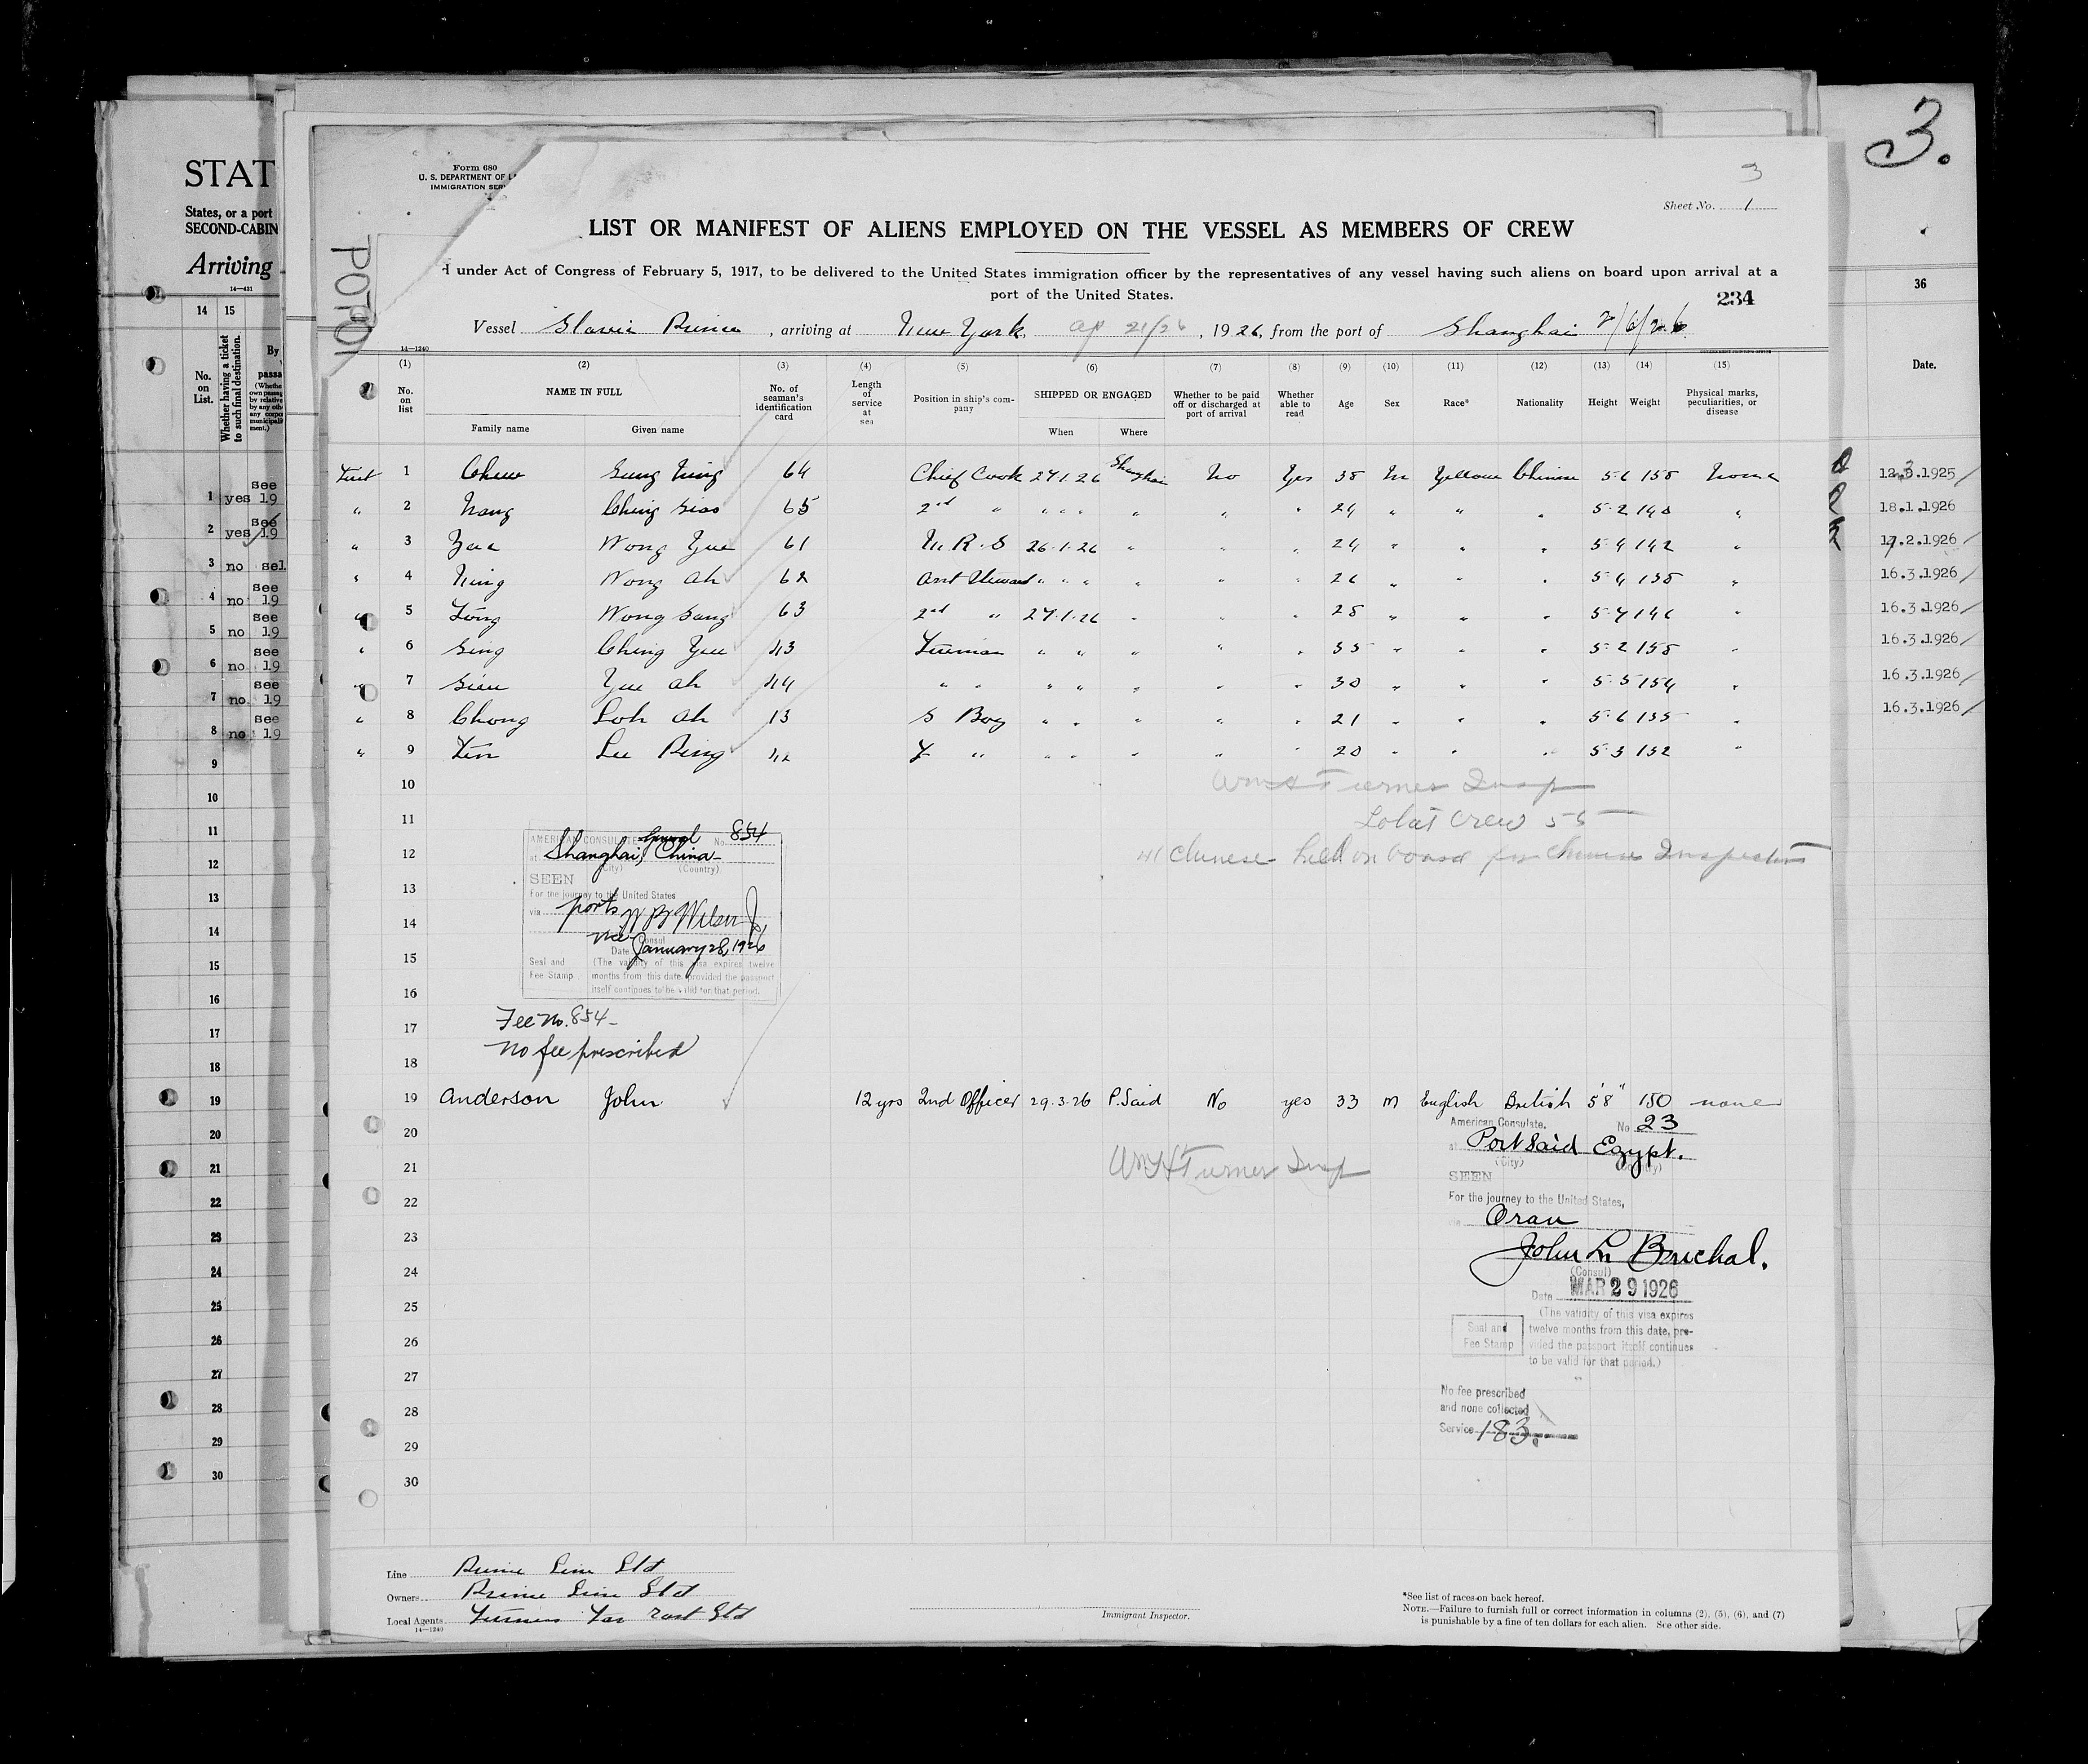 3.
STAT
States, or a port
SECOND-CABIN
Arriving
14—431
14 15
No. on List.
Whether having a ticket to such final destination.
By
passa
36
Date.
1 yes see 19
2 yes see 19
3 no sel
4 no see 19
5 no see 19
6 no see 19
7 no see 19
8 no see 19
9
10
11
12
13
14
15
16
17
18
19
20
21
22
23
24
25
26
27
28
29
30
12.3.1925
18.1.1926
17.2.1926
16.3.1926
16.3.1926
16.3.1926
16.3.1926
16.3.1926
Form 680
U. S. DEPARTMENT OF LA
IMMIGRATION SER
3
Sheet No. 1
LIST OR MANIFEST OF ALIENS EMPLOYED ON THE VESSEL AS MEMBERS OF CREW
d under Act of Congress of February 5, 1917, to be delivered to the United States immigration officer by the representatives of any vessel having such aliens on board upon arrival at a
port of the United States.
234
Vessel Slavic Prince, arriving at New York, ap 21/26, 1926, from the port of Shanghai 2/6/26
14—1240
(1) (2) (3) (4) (5) (6) (7) (8) (9) (10) (11) (12) (13) (14) (15)
No. on list
NAME IN FULL
Family name Given name
No. of seaman's identification card
Length of service at sea
Position in ship's company
SHIPPED OR ENGAGED
When Where
Whether to be paid off or discharged at port of arrival
Whether able to read
Age Sex Race* Nationality Height Weight
Physical marks, peculiarities, or disease
First 1 Chew Sung Ning 64 Chief Cook 27.1.26 Shanghai No Yes 38 M Yellow Chinese 5.6 158 None
" 2 Ching 65 2nd " " " " " " " 24 " " " 5.2 140 "
" 3 Wong Yue 61 M.R.S 26.1.26 " " " 24 " " " 5.4 142 "
" 4 Ning Wong Ah 62 Asst Steward " " " " " " 26 " " " 5.4 "
" 5 Wong Sang 63 2nd " 27.1.26 " " " 28 " " " 5.4 146 "
" 6 Sing Ching Yue 43 Fireman " " " " " 35 " " " 5.2 158 "
" 7 Yue Ah 44 " " " " " " " 30 " " " 5.5 154 "
" 8 Chong Loh Ah 13 S Boy " " " " " 21 " " " 5.6 135 "
" 9 Lee Ping 42 F " " " " " " 20 " " " 5.3 132 "
10
Wm H Turner Insp
11
Total Crew 55
12
41 Chinese held on board for Chinese Inspection
13
14
15
16
17
18
AMERICAN CONSULATE General No. 854
at Shanghai, China
(City) (Country)
SEEN
For the journey to the United States
via ports
Vice Consul
Date January 28, 1926
Seal and Fee Stamp
(The validity of this visa expires twelve
months from this date, provided the passport
itself continues to be valid for that period.
Fee No. 854
No fee prescribed
19 Anderson John 12 yrs 2nd Officer 29.3.26 P. Said No yes 33 M English British 5'8" 150 none
20
21
22
23
24
25
26
27
28
29
30
Wm H Turner Insp
American Consulate. No 23
at Port Said Egypt.
(City)
SEEN
For the journey to the United States,
via Oran
(Consul)
Date MAR 29 1926
(The validity of this visa expires
twelve months from this date, pro-
vided the passport itself continues
to be valid for that period.)
Seal and
Fee Stamp
No fee prescribed
and none collected
Service 183.
Line Prince Line Ltd
Owners Prince Line Ltd
Local Agents Furness Far East Ltd
14—1240
Immigrant Inspector.
*See list of races on back hereof.
NOTE.—Failure to furnish full or correct information in columns (2), (5), (6), and (7)
is punishable by a fine of ten dollars for each alien. See other side.